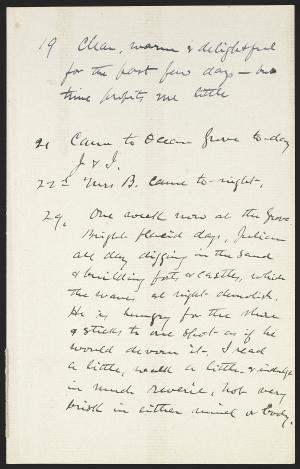 19 Clear, warm & delightful
for the past few days — but
time profits me little
21 Came to Ocean Grove to-day
J & I.
22d Mrs B. came to-night.
29. One week now at the Grove.
Bright placid days, Julian
all day digging in the sand
& building forts & castles, which
the waves at night demolish.
He is hungry for the shore
& sticks to one spot as if he
would devour it. I read
a little, walk a little & indulge
in much reverie, not very
brisk in either mind or body.